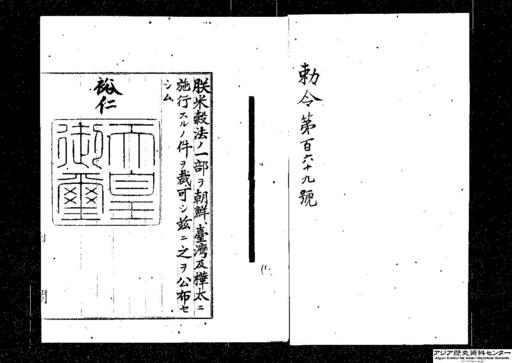 勅令第百六十九號
朕米穀法ノ一部ヲ朝鮮、臺灣及樺太ニ
施行スルノ件ヲ裁可シ茲ニ之ヲ公布セ
シム
裕仁
天皇
御璽
アジア歴史資料センター
Japan Center for Asian Historical Records